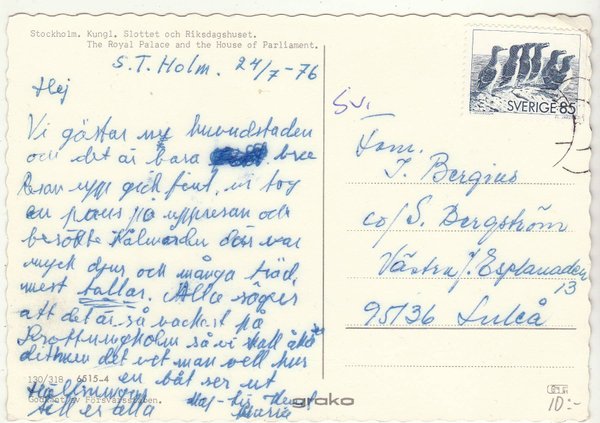 Stockholm. Kungl. Slottet och Riksdagshuset.
The Royal Palace and the House of Parliament.
S.T. Holm. 24/7-76
Hej
Vi gästar nu huvudstaden
och det är bara bra
Resan upp gick fint, vi tog
en paus på uppresan och
besökte Kolmården där var
myck djur och många träd
mest tallar. Alla säger
att det är så vackert på
Drottningholm så vi skall åka
dit men det vet man vell hur
en båt ser ut
Hällsningar
till er alla
Maj-Lis
Maria
130/318 6515-4
Godkänt av Försvarsstaben.
grako
SVERIGE 85
Sv.
Fam.
I. Bergius
co/S. Bergström
Västra J. Esplanaden
13
95136 Luleå
10:-